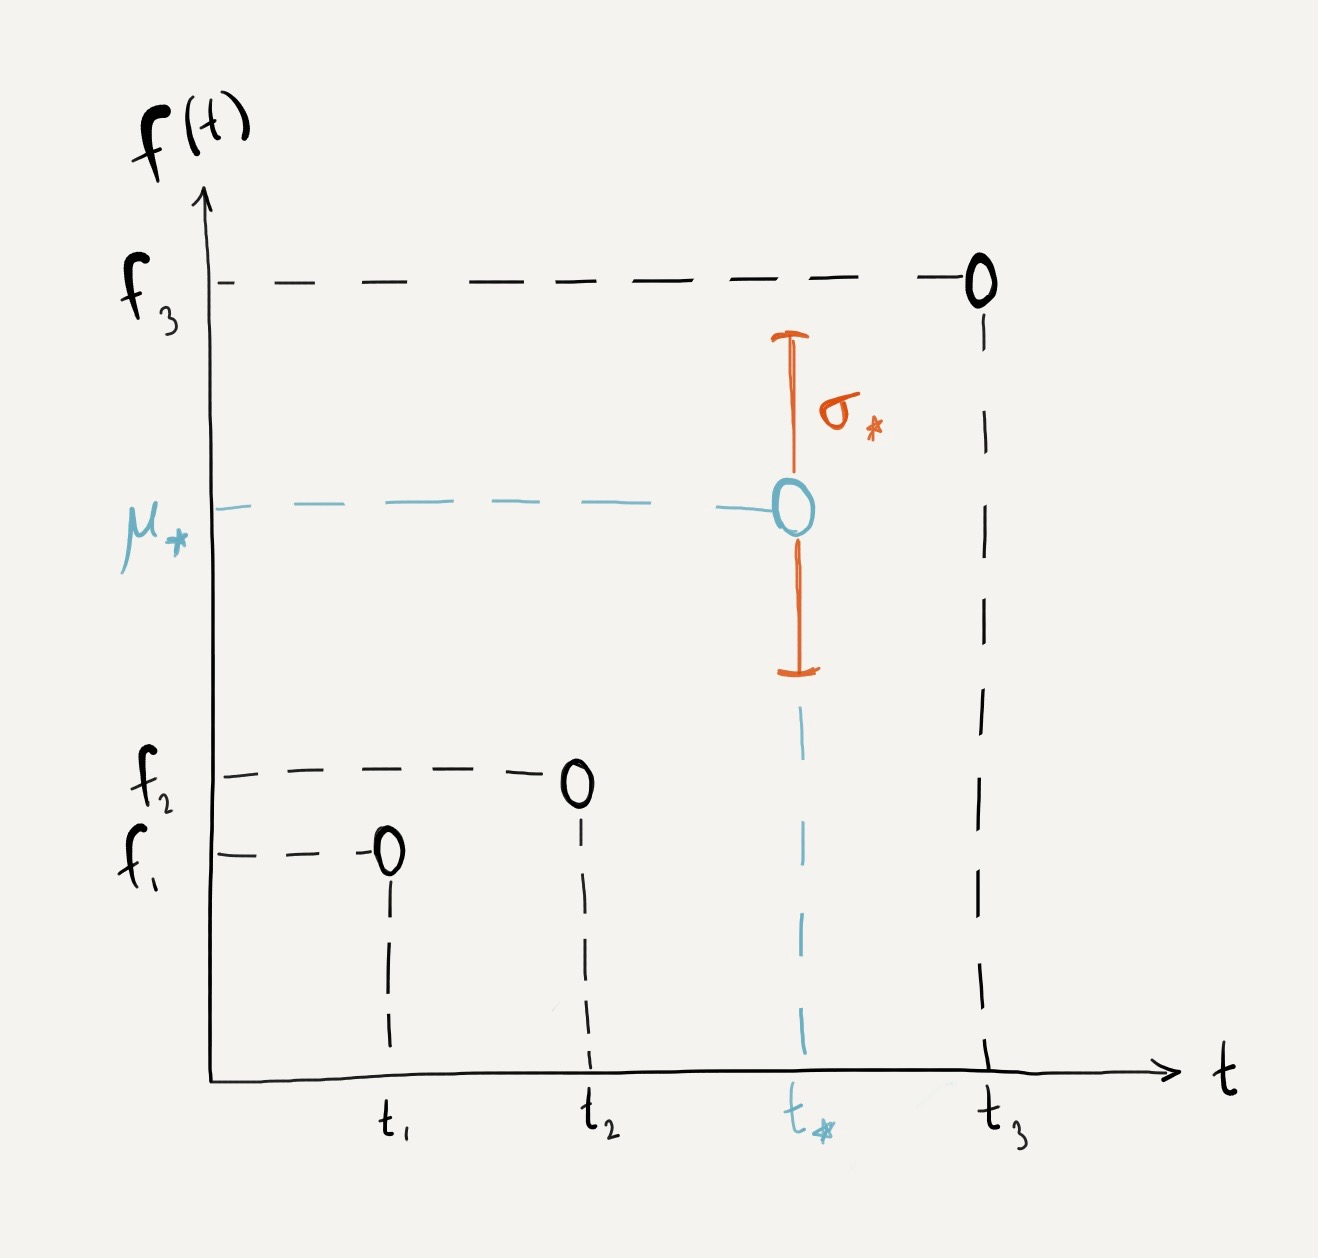 f(t)
f₃
σ⋆
μ⋆
f₂
f₁
t₁ t₂ t⋆ t₃ t